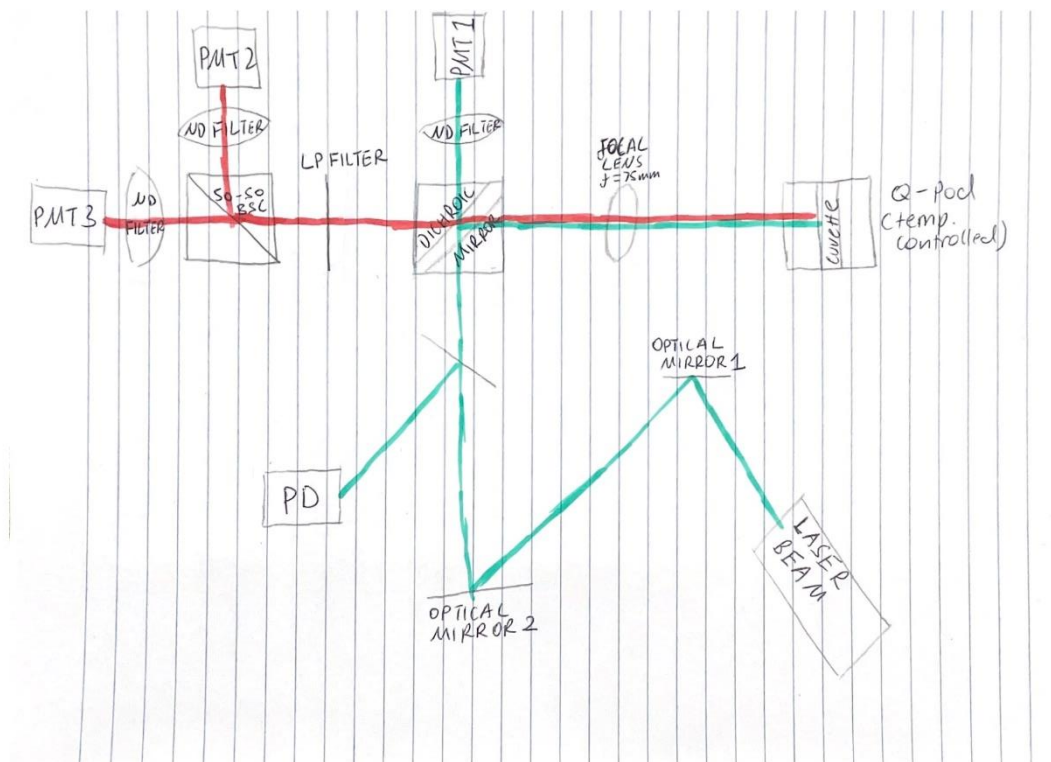 PMT2
PMT1
ND FILTER
ND FILTER
LP FILTER
FOCAL
LENS
f=75mm
PMT3
ND
FILTER
50-50
BSC
DICHROIC
MIRROR
CUVETTE
Q-Pod
(temp.
controlled)
OPTICAL
MIRROR 1
PD
LASER
BEAM
OPTICAL
MIRROR 2